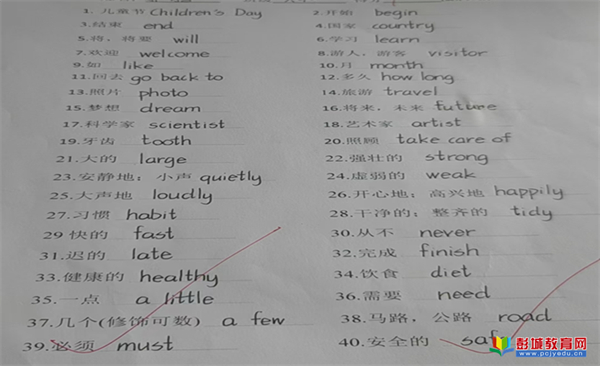 1. 儿童节 Children's Day 2. 开始 begin
3.结束 end 4.国家 country
5.将，将要 will 6.学习 learn
7.欢迎 welcome 8.游人，游客 visitor
9.如 like 10.月 month
11.回去 go back to 12.多久 how long
13.照片 photo 14.旅游 travel
15.梦想 dream 16.将来，未来 future
17.科学家 scientist 18.艺术家 artist
19.牙齿 tooth 20.照顾 take care of
21.大的 large 22.强壮的 strong
23.安静地；小声 quietly 24.虚弱的 weak
25.大声地 loudly 26.开心地；高兴地 happily
27.习惯 habit 28.干净的；整齐的 tidy
29 快的 fast 30.从不 never
31.迟的 late 32.完成 finish
33.健康的 healthy 34.饮食 diet
35.一点 a little 36.需要 need
37.几个(修饰可数) a few 38.马路，公路 road
39.必须 must 40.安全的 saf
彭城教育网
www.pcjyedu.cn